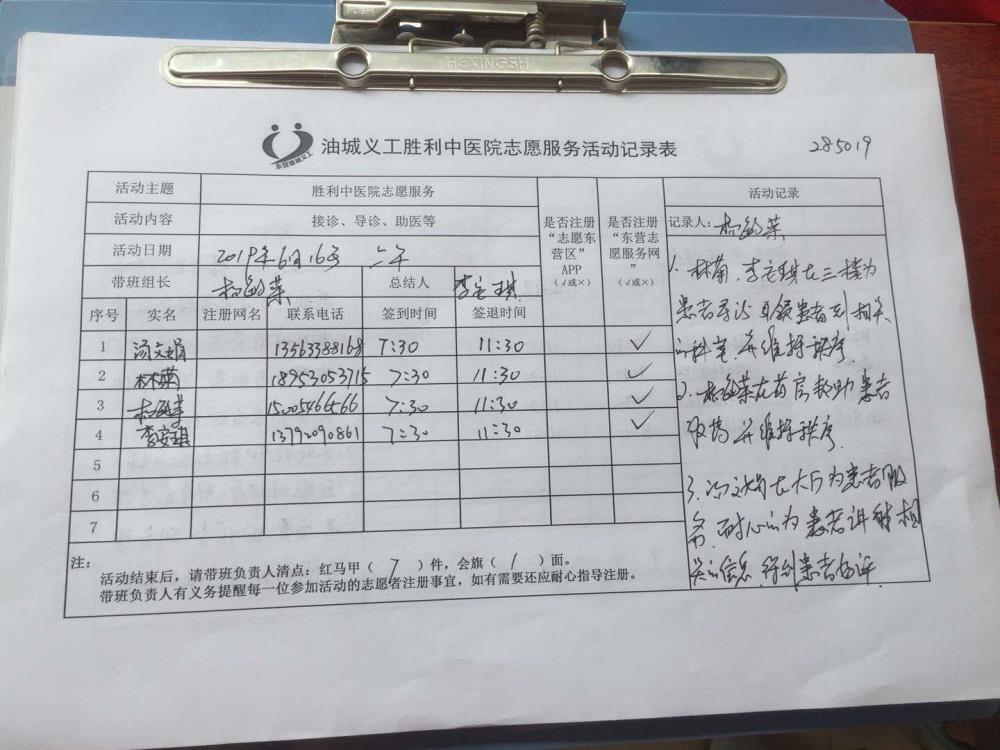 HEXINGSH
东营油城义工
油城义工胜利中医院志愿服务活动记录表
285019
活动主题 胜利中医院志愿服务
活动内容 接诊、导诊、助医等
活动日期 2019年6月16号 上午
带班组长 杨敏荣 总结人 李安琪
是否注册“志愿东营区”APP(√或×)
是否注册“东营志愿服务网”(√或×)
序号 实名 注册网名 联系电话 签到时间 签退时间
1 汤文娟 13563388168 7:30 11:30 ✓
2 林菊 18953053715 7:30 11:30 ✓
3 杨敏荣 15005466566 7:30 11:30 ✓
4 李安琪 13792090861 7:30 11:30 ✓
5
6
7
注:
活动结束后,请带班负责人清点:红马甲(7)件,会旗(1)面。
带班负责人有义务提醒每一位参加活动的志愿者注册事宜,如有需要还应耐心指导注册。
活动记录
记录人:杨敏荣
1. 林菊、李安琪在三楼为
患者导诊 带领患者到相关
的科室,并维持秩序。
2. 杨敏荣在药房帮助患者
取药并维持秩序.
3. 汤文娟在大厅为患者服
务,耐心的为患者讲解相
关的信息,得到患者好评.